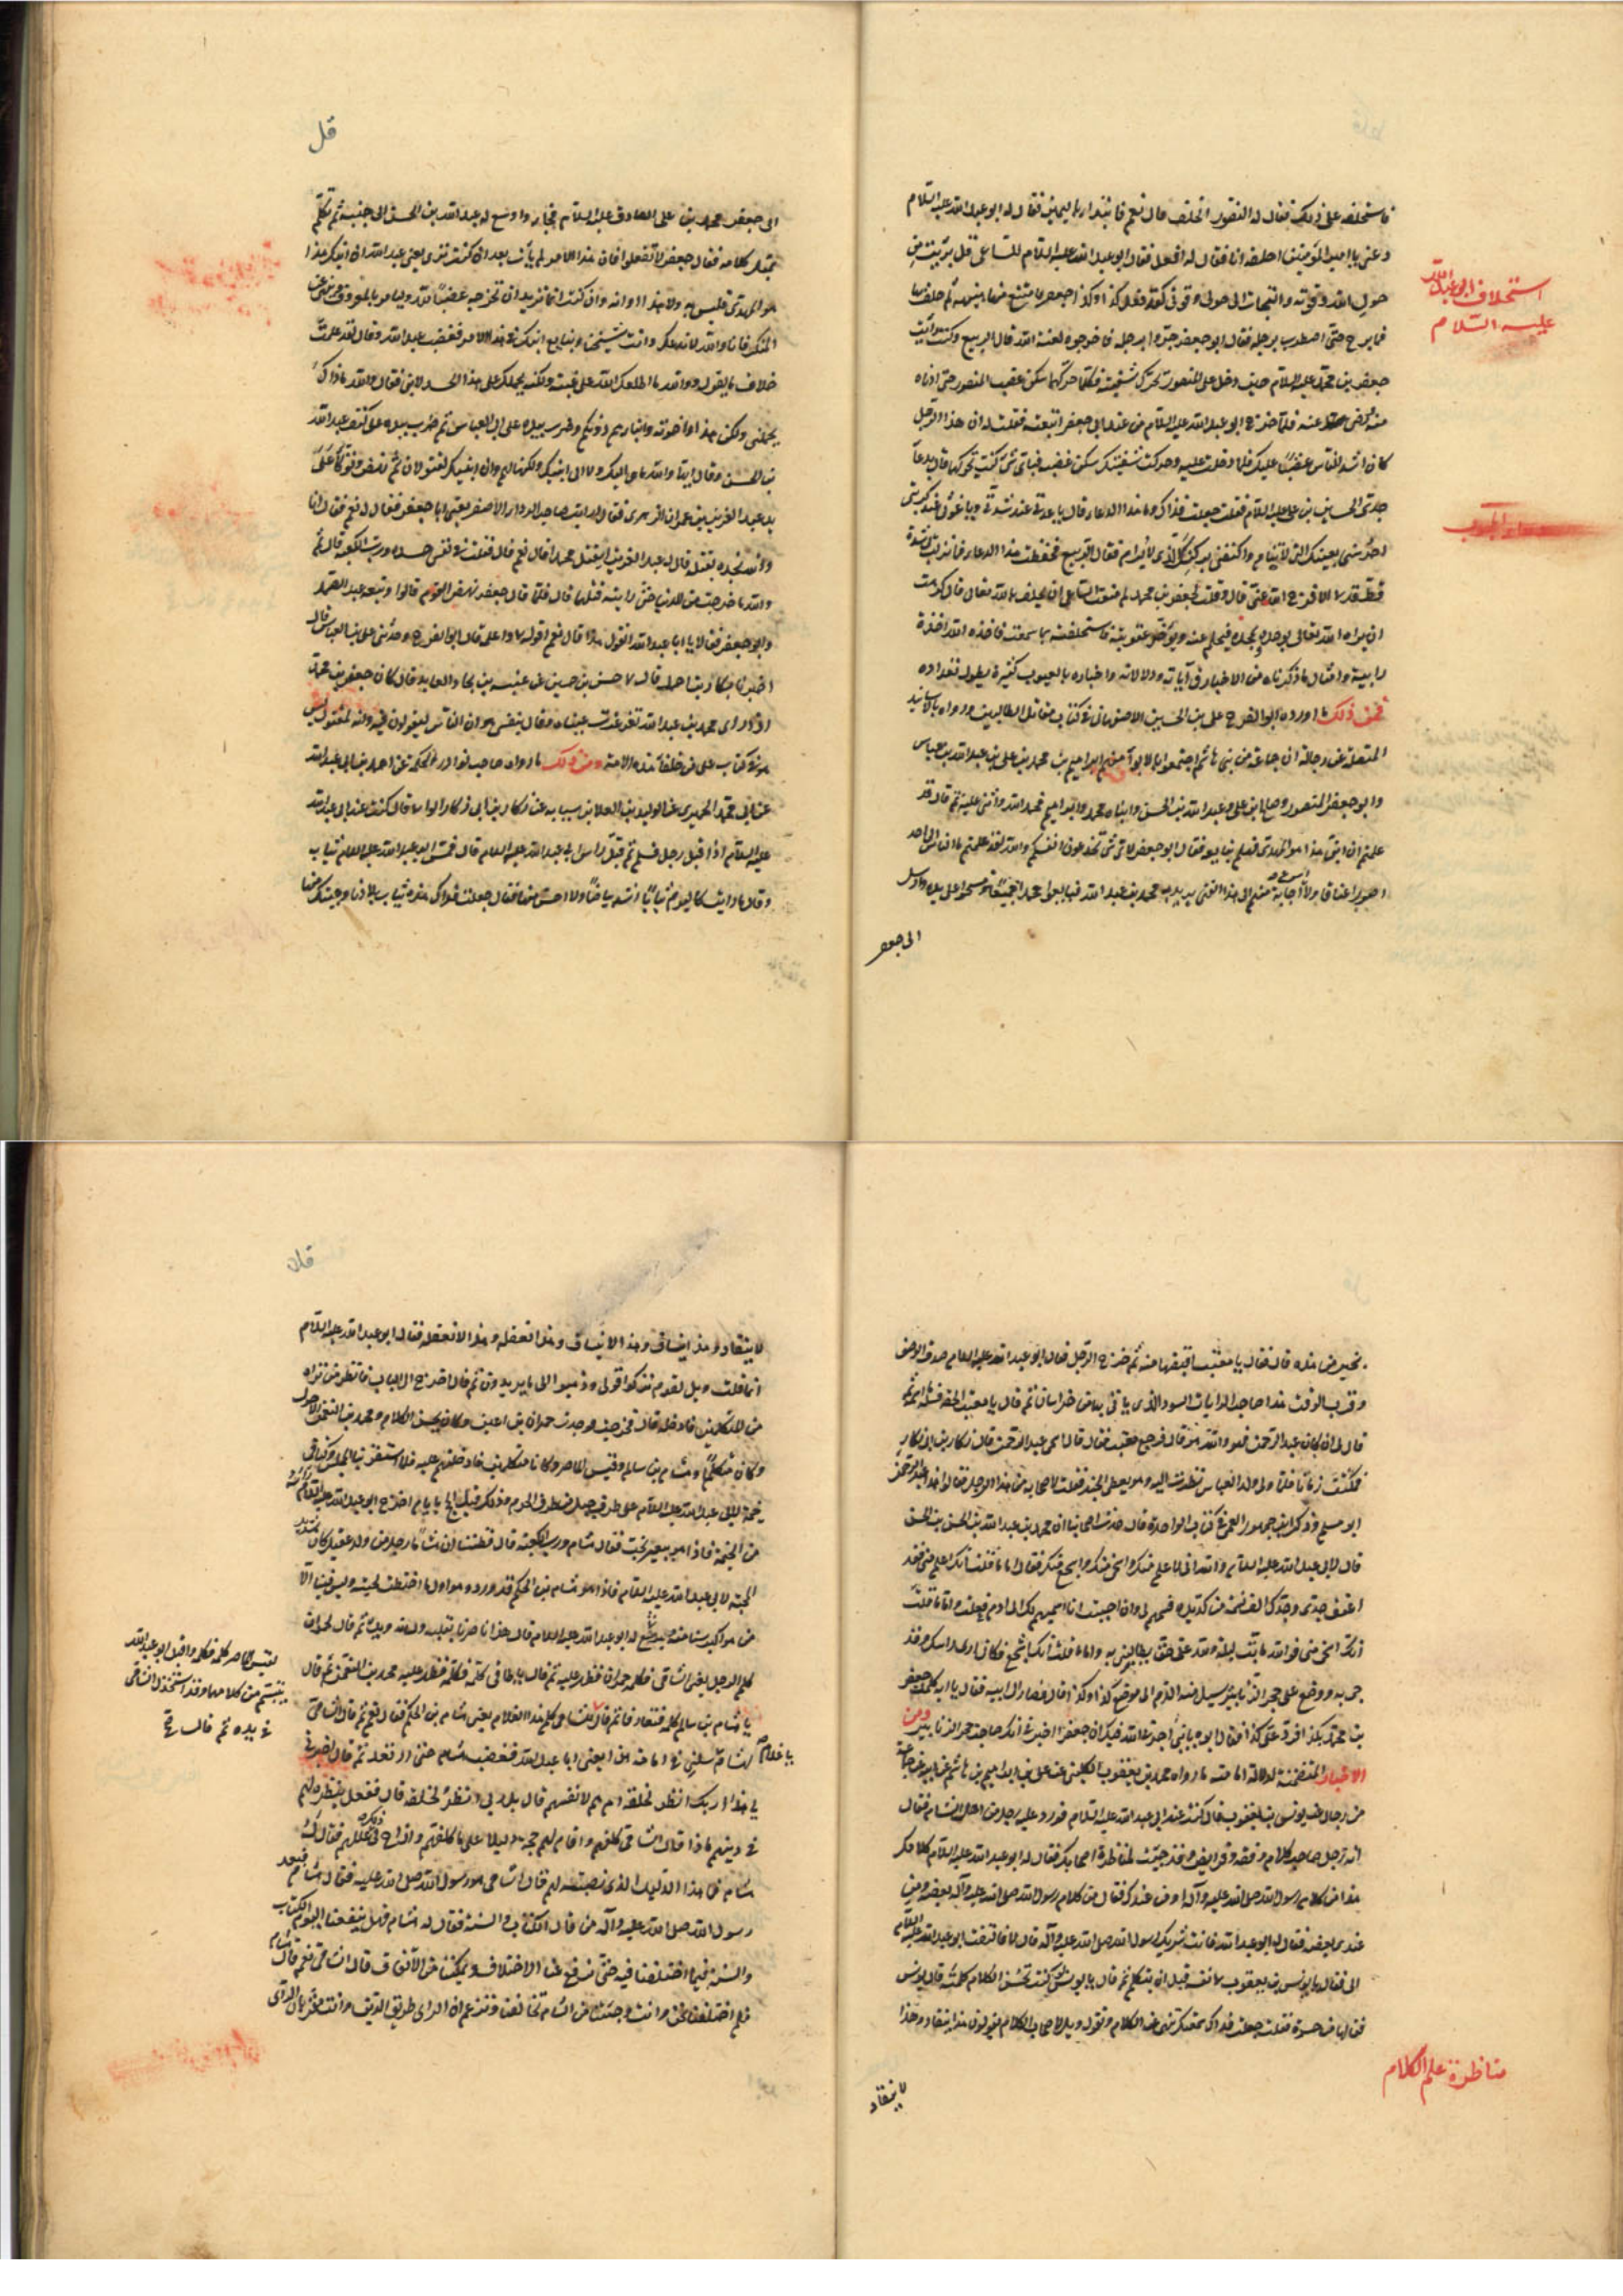 فاستحلفه على ذلك فقال له المنصور اتحلف قال نعم فابتدا باليمين فقال له ابو عبد الله عليه السلام
دعني يا امير المؤمنين احلفه انا فقال له افعل فقال ابو عبد الله عليه السلام للساعي قل برئت من
حول الله وقوته والتجات الى حولي وقوتي لقد فعل كذا وكذا جعفر فامتنع منها هنيهة ثم حلف بها
فما برح حتى اضطرب برجله فقال ابو جعفر جروا برجله فاخرجوه لعنه الله قال الربيع وكنت رايت
جعفر بن محمد عليه السلام حين دخل على المنصور تحرك شفتيه فكلما حركهما سكن غضب المنصور حتى ادناه
منه ورضي عنه فلما خرج ابو عبد الله عليه السلام من عند ابي جعفر اتبعته فقلت له ان هذا الرجل
كان اشد الناس غضبا عليك فلما دخلت عليه وحركت شفتيك سكن غضبه فباي شئ كنت تحركها قال بدعاء
جدي الحسين بن علي عليه السلام فقلت جعلت فداك وما هذا الدعاء قال يا عدتي عند شدتي ويا غوثي عند كربتي
احرسني بعينك التي لا تنام واكنفني بركنك الذي لا يرام فقال الربيع فحفظت هذا الدعاء فما نزلت بي شدة
قط فدعوت به الا فرج الله عني قال وقلت لجعفر بن محمد لم منعت الساعي ان يحلف بالله تعالى قال كرهت
ان يراه الله تعالى يوحده ويمجده فيحلم عنه ويؤخر عقوبته فاستحلفته بما سمعته فاخذه الله اخذة
رابية وامثال ما ذكرناه من الاخبار في آياته ودلالاته واخباره بالغيوب كثيرة يطول تعداده
فمن ذلك ما اورده ابو الفرج علي بن الحسين الاصفهاني في كتاب مقاتل الطالبيين ورواه بالاسانيد
المتصلة عن رجاله ان جماعة من بني هاشم اجتمعوا بالابواء منهم ابراهيم بن محمد بن علي بن عبد الله بن عباس
وابو جعفر المنصور وصالح بن علي وعبد الله بن الحسن وابناه محمد وابراهيم فحمد الله واثنى عليه ثم قال قد
علمتم ان ابني هذا هو المهدي فهلم نبايعه فقال ابو جعفر لاي شئ تخدعون انفسكم والله لقد علمتم ما الناس الى احد
اصور اعناقا ولا اسرع اجابة منهم الى هذا الفتى يريد به محمد بن عبد الله فبايعوا محمدا جميعا ومسحوا على يده وارسل
الى جعفر
استحلاف ابو عبد الله
عليه السلام
قل
الى جعفر بن محمد بن علي الصادق عليه السلام فجاء واوسع له عبد الله بن الحسن الى جنبه ثم تكلم
بمثل كلامه فقال جعفر لا تفعلوا فان هذا الامر لم يأت بعد ان كنت ترى يعني عبد الله ان ابنك هذا
هو المهدي فليس به ولا هذا اوانه وان كنت انما تريد ان تخرجه غضبا لله وليامر بالمعروف وينهى عن
المنكر فانا والله لا ندعك وانت شيخنا ونبايع ابنك في هذا الامر فغضب عبد الله وقال لقد علمت
خلاف ما تقول ووالله ما اطلعك الله على غيبه ولكنه يحملك على هذا الحسد لابني فقال والله ما ذاك
يحملني ولكن هذا واخوته وابناءهم دونكم وضرب بيده على ابي العباس ثم ضرب بيده على كتف عبد الله
بن الحسن وقال ايها والله ما هي اليك ولا الى ابنيك ولكنها لهم وان ابنيك لمقتولان ثم نهض وتوكأ على
يد عبد العزيز بن عمران الزهري فقال ارايت صاحب الرداء الاصفر يعني ابا جعفر فقال له نعم فقال انا
والله نجده يقتله قال له عبد العزيز ايقتل محمدا قال نعم قال فقلت في نفسي حسده ورب الكعبة قال ثم
والله ما خرجت من الدنيا حتى رايته قتلها قال فلما قال جعفر نهض القوم قالوا وتبعه عبد الصمد
وابو جعفر فقالا يا ابا عبد الله اتقول هذا قال نعم اقوله
اذا راى محمد بن عبد الله تغرغرت عيناه وقال بنفسي هو ان الناس ليقولون فيه وانه لمقتول ليس
هو في كتاب علي من خلفاء هذه الامة ومن ذلك ما رواه صاحب نوادر الحكمة عن احمد بن ابي عبد الله
عليه السلام اذ اقبل رجل فسلم ثم قبل راس ابي عبد الله عليه السلام قال فمس ابو عبد الله عليه السلام ثيابه
وقال ما رايت كاليوم ثيابا اشد بياضا ولا احسن منها فقال جعلت فداك هذه ثياب بلادنا وجئتك منها
بخير من هذه قال فقال يا معتب اقبضها منه ثم خرج الرجل فقال ابو عبد الله عليه السلام صدق الوصف
وقرب الوقت هذا صاحب الرايات السود الذي ياتي بها من خراسان ثم قال يا معتب الحقه فسله ما اسمه ثم
قال لي ان كان عبد الرحمن فهو والله هو قال فرجع معتب فقال قال اسمي عبد الرحمن قال زكار بن ابي زكار
فمكثت زمانا فلما ولي ولد العباس نظرت اليه وهو يعطي الجند فقلت لاصحابه من هذا الرجل فقالوا هذا عبد الرحمن
ابو مسلم وذكر ابن جمهور العمي في كتاب الواحدة قال حدث اصحابنا ان محمد بن عبد الله بن الحسن بن الحسن
قال لابي عبد الله عليه السلام والله اني لاعلم منك واسخى منك واشجع منك فقال اما ما قلت انك اعلم مني فقد
اعتق جدي وجدك الف نسمة من كد يده فسمهم لي وان احببت انا اسميهم لك الى ادم فعلت واما ما قلت
انك اسخى مني فوالله ما بت ليلة ولله علي حق يطالبني به واما ما قلت انك اشجع فكاني ارى راسك وقد
جئ به ووضع على جحر الزنابير يسيل منه الدم الى موضع كذا وكذا قال فصار الى ابيه فقال يا ابه كلمت جعفر
بن محمد بكذا فرد علي كذا فقال ابوه يا بني آجرني الله فيك ان جعفرا اخبرني انك صاحب جحر الزنابير ومن
الاخبار المتضمنة لدلالة امامته ما رواه محمد بن يعقوب الكليني عن علي بن ابراهيم بن هاشم عن ابيه عن جماعة
من رجاله عن يونس بن يعقوب قال كنت عند ابي عبد الله عليه السلام فورد عليه رجل من اهل الشام فقال
اني رجل صاحب كلام وفقه وفرايض وقد جئت لمناظرة اصحابك فقال له ابو عبد الله عليه السلام كلامك
هذا من كلام رسول الله صلى الله عليه وآله او من عندك فقال من كلام رسول الله صلى الله عليه وآله بعضه ومن
عندي بعضه فقال له ابو عبد الله فانت شريك رسول الله صلى الله عليه وآله قال لا فالتفت ابو عبد الله عليه السلام
الي فقال يا يونس بن يعقوب هذا خصم نفسه قبل ان يتكلم ثم قال يا يونس لو كنت تحسن الكلام كلمته قال يونس
فيا لها من حسرة فقلت جعلت فداك سمعتك تنهى عن الكلام وتقول ويل لاصحاب الكلام يقولون هذا ينقاد وهذا
لا ينقاد
مناظرة علم الكلام
لا ينقاد وهذا ينساق وهذا لا ينساق وهذا نعقله وهذا لا نعقله فقال ابو عبد الله عليه السلام
انما قلت ويل لقوم تركوا قولي وذهبوا الى ما يريدون ثم قال اخرج الى الباب فانظر من تراه
من المتكلمين فادخله قال فخرجت فوجدت حمران بن اعين وكان يحسن الكلام ومحمد بن النعمن الاحول
وكان متكلما وهشام بن سالم وقيس الماصر وكانا متكلمين فادخلتهم عليه فلما استقر بنا المجلس وكنا في
خيمة لابي عبد الله عليه السلام على طرف جبل في طرف الحرم وذلك قبل الحج بايام اخرج ابو عبد الله عليه السلام راسه
من الخيمة فاذا هو ببعير يخب فقال هشام ورب الكعبة قال فظننا ان هشاما رجل من ولد عقيل كان شديد
المحبة لابي عبد الله عليه السلام فاذا هو هشام بن الحكم قد ورد وهو اول ما اختطت لحيته وليس فينا الا
من هو اكبر سنا منه فوسع له ابو عبد الله عليه السلام وقال هذا ناصرنا بقلبه ولسانه ويده ثم قال لحمران
كلم الرجل يعني الشامي فكلمه حمران فظهر عليه ثم قال يا طاقي كلمه فكلمه فظهر عليه محمد بن النعمن ثم قال
يا هشام بن سالم كلمه فتعارفا ثم قال للشامي كلم هذا الغلام يعني هشام بن الحكم فقال نعم ثم قال الشامي
لهشام يا غلام سلني في امامة هذا يعني ابا عبد الله فغضب هشام حتى ارتعد ثم قال اخبرني
يا هذا اربك انظر لخلقه ام هم لانفسهم قال بل ربي انظر لخلقه قال ففعل بنظره لهم
في دينهم ماذا قال الشامي كلفهم واقام لهم حجة ودليلا على ما كلفهم وازاح في ذلك عللهم فقال له
هشام فما هذا الدليل الذي نصبه لهم قال الشامي هو رسول الله صلى الله عليه فقال هشام فبعد
رسول الله صلى الله عليه وآله من قال الكتاب والسنة فقال له هشام فهل ينفعنا اليوم الكتاب
والسنة فيما اختلفنا فيه حتى نرفع عنا الاختلاف ويمكننا من الاتفاق قال الشامي نعم قال هشام
فلم اختلفنا نحن وانت وجئتنا من الشام تخالفنا وتزعم ان الراي طريق الدين وانت مقر بان الراي
لقيس الماصر كلمه فكلمه واقبل ابو عبد الله
يتبسم من كلامهما وقد استخذل الشامي
في يده ثم قال
يا غلام